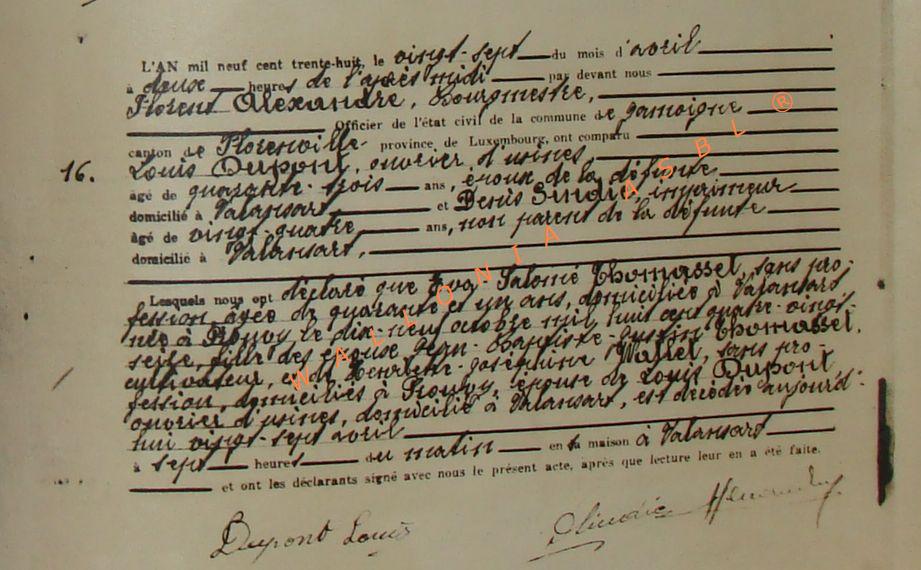 L'AN mil neuf cent trente-huit, le vingt-sept du mois d'avril
à deux heures de l'après midi par devant nous
Florent Alexandre, Bourgmestre,
Officier de l'état civil de la commune de Jamoigne
canton de Florenville province de Luxembourg, ont comparu
16. Louis Dupont, ouvrier d'usines
âgé de quarante-trois ans, époux de la défunte
domicilié à Valansart, et Denis, imprimeur
âgé de vingt-quatre ans, non parent de la défunte
domicilié à Valansart,
Lesquels nous ont déclaré que Salomé Thomasset, sans pro-
fession, âgée de quarante et un ans, domiciliée à Valansart
née à Prouvy le dix-neuf octobre mil huit cent quatre-vingt-
seize, fille des époux Jean-Baptiste-Justin Thomasset,
cultivateur, et de Henriette-Joséphine Watlet, sans pro-
fession, domiciliés à Prouvy, épouse de Louis Dupont
ouvrier d'usines, domicilié à Valansart, est décédée aujourd'
hui vingt-sept avril
à sept heures du matin en sa maison à Valansart
et ont les déclarants signé avec nous le présent acte, après que lecture leur en a été faite.
Dupont Louis
WALLONIA ASBL ®